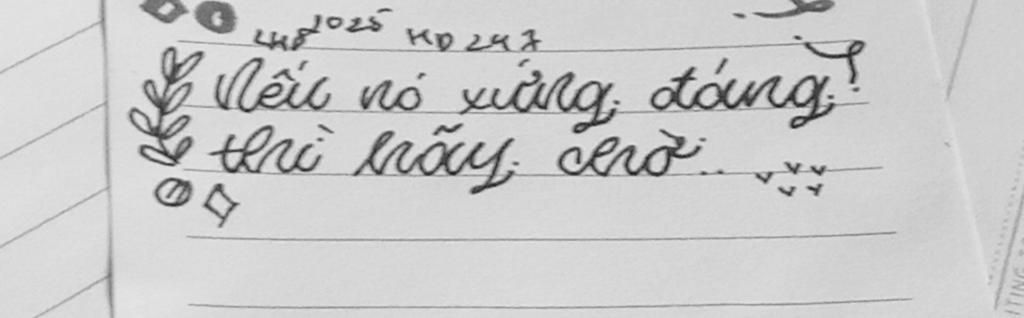 1025 HD 247
Nếu nó xứng đáng!
thì hãy chờ..